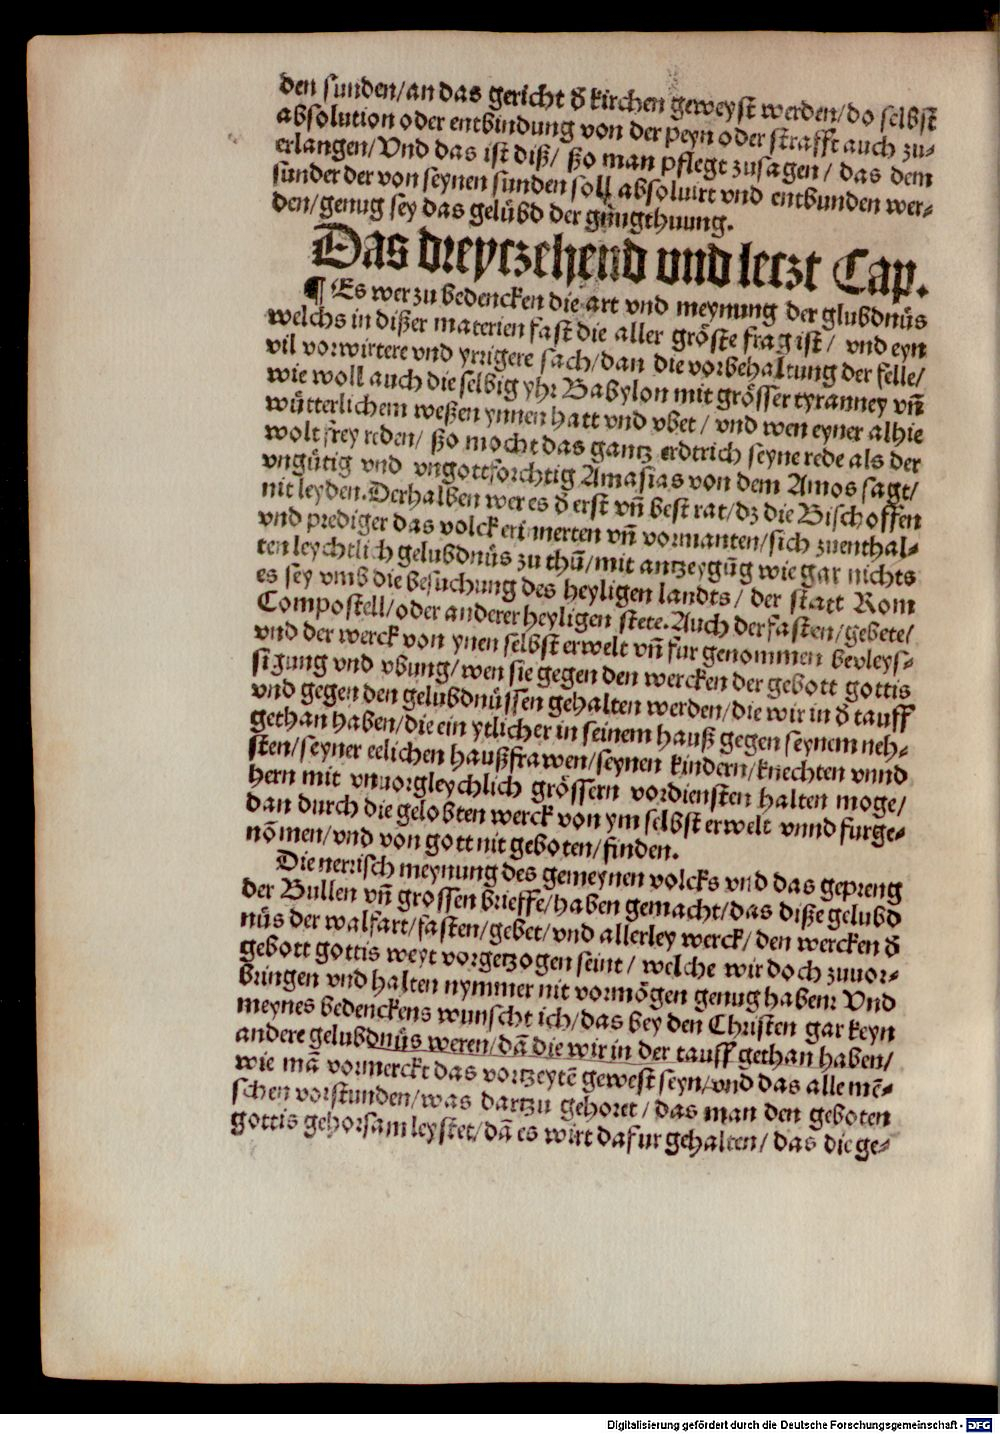 den sunden/an das gericht d̕ kirchen geweyst werden/do selbst
absolution oder entbindung von der peyn oder strafft auch zu-
erlangen/Vnd das ist diß/ ßo man pflegt zusagen/ das dem
sunder der von seynen sunden soll absoluirt vnd entbunden wer-
den/genug sey das gelübd der gnugthuung.
Das dreytzehend vnd letzt Cap.
¶ Es wer zu bedencken die art vnd meynung der glubdnüs
welchs in dißer materien fast die aller gröste frag ist/ vnd eyn
vil vorwirtere vnd yrrigere sach/dan die vorbehaltung der felle/
wie woll auch die selbig yhr Babylon mit grösser tyranney vñ
wütterlichem weßen ynnen hatt vnd vbet/ vnd wen eyner alhie
wolt frey reden/ ßo mocht das gantz erdtrich seyne rede als der
vngütig vnd vngottforchtig Amasias von dem Amos sagt/
nit leyden.Derhalben wer es d̕ erst vñ best rat/dz die Bischoffen
vnd prediger das volck erinnerten vñ vormanten/sich zuenthal-
ten leychtlich gelubdnüs zu thũ/mit antzeygũg wie gar nichts
es sey vmb die besuchung des heyligen landts/ der statt Rom
Compostell/oder anderer heyligen stete.Auch der fasten/gebete/
vnd der werck von ynen selbst erwelt vñ fur genommen bevleys-
sigung vnd vbung/wen sie gegen den wercken der gebott gottis
vnd gegen den gelubdnüssen gehalten werden/die wir in d̕ tauff
gethan haben/die ein ytlicher in seinem hauß gegen seynem neh-
sten/seyner eelichen haußfrawen/seynen kindern/knechten vnnd
hern mit vnuorgleychlich grössern vordiensten halten moge/
dan durch die gelobten werck von ym selbst erwelt vnnd furge-
nõmen/vnd von gott nit geboten/finden.
Die nerrisch meynung des gemeynen volcks vnd das gepreng
der Bullen vñ grossen brieffe/haben gemacht/das diße gelubd
nüs der walfart/fasten/gebet/vnd allerley werck/den wercken d̕
gebott gottis weyt vorgetzogen seint/ welche wir doch zuuor-
bringen vnd halten nymmer nit vormögen genug haben: Vnd
meynes bedenckens wunscht ich/das bey den Christen gar keyn
andere gelubdnüs weren/dã die wir in der tauff gethan haben/
wie mã vormerckt das vortzeytẽ gewest seyn/vnd das alle mẽ-
schen vorstunden/was dartzu gehoret/das man den geboten
gottis gehorsam leystet/dã es wirt dafur gehalten/ das die ge-
Digitalisierung gefördert durch die Deutsche Forschungsgemeinschaft - DFG